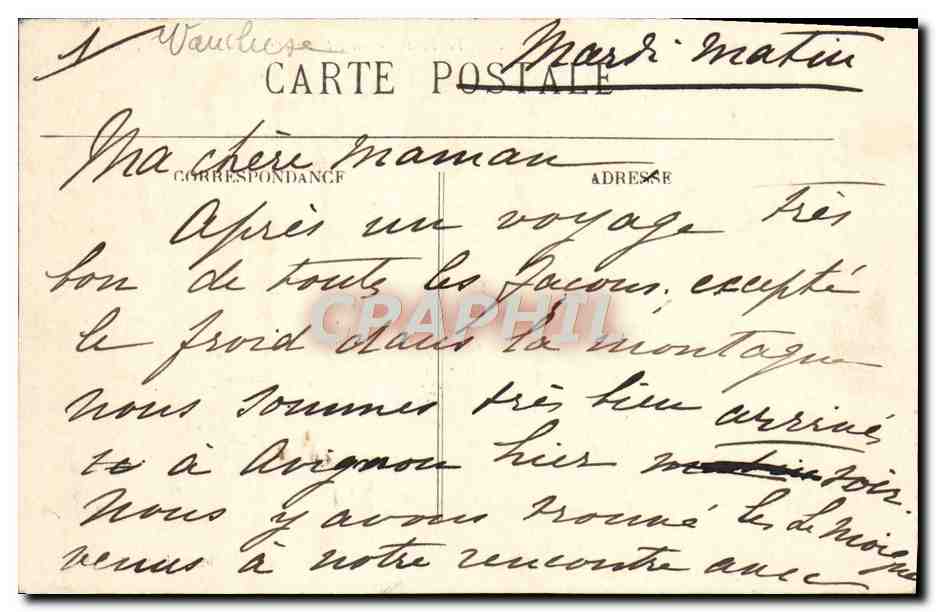 1 Vaucluse
Mardi matin
CARTE POSTALE
Ma chère maman
CORRESPONDANCE ADRESSE
Après un voyage très
bon de toutes les façons, excepté
CPAPHIL
le froid dans la montagne
nous sommes très bien arrivés
à Avignon hier matin soir.
Nous y avons trouvé les Le Moigne
venus à notre rencontre avec